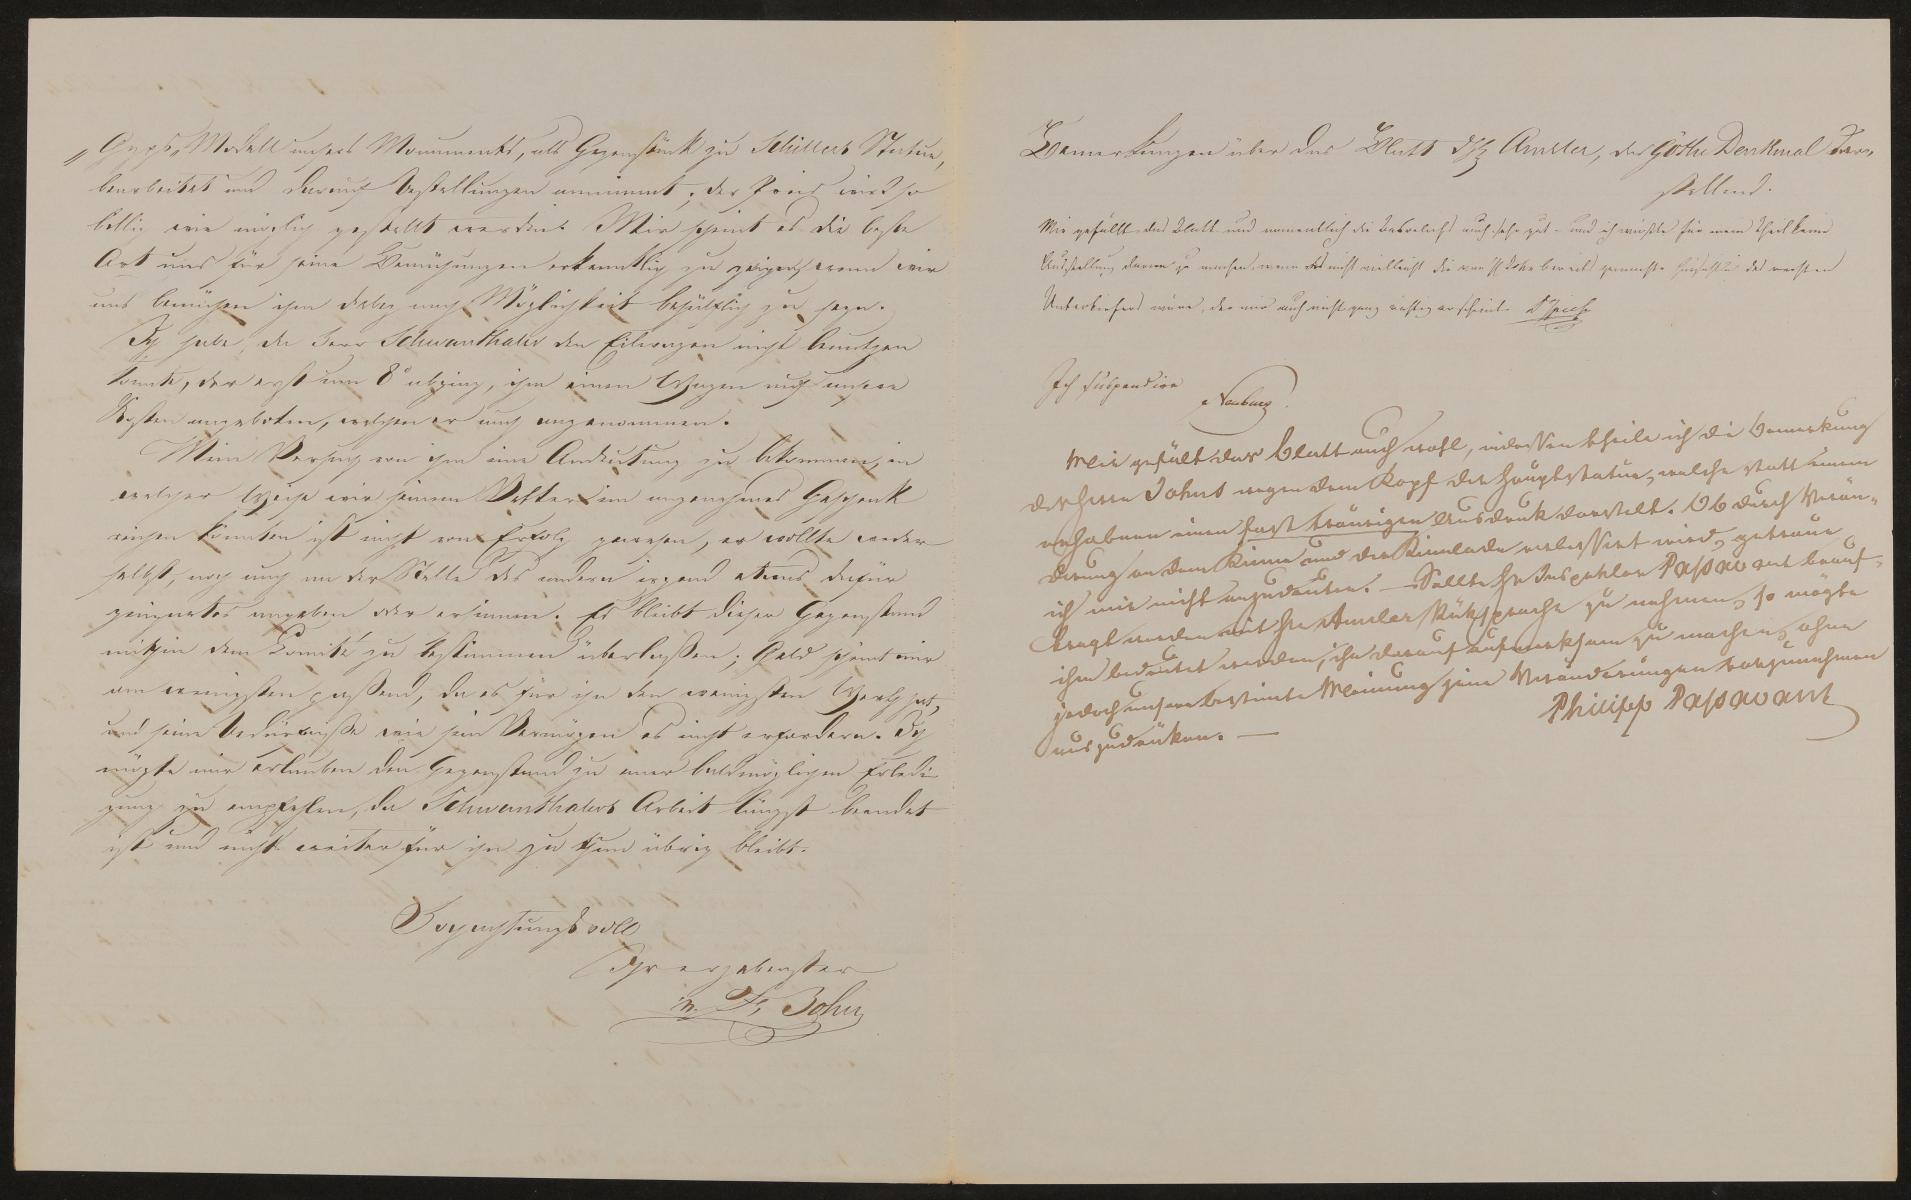 „Gyps„ Modell unsers Monuments, als Gegenstück zu Schillers Statue,
bearbeitet und darauf Bestellungen annimmt, der Preis wird so
billig wie möglich gestellt werden. Mir scheint es die beste
Art uns für seine Bemühungen erkenntlich zu zeigen, wenn wir
uns bemühen ihm dabey nach Möglichkeit behülflich zu seyn.
Ich habe, da Herr Schwanthaler den Eilwagen nicht benutzen
konnte, der erst um 8° abging, ihm einen Wagen auf unsere
Kosten angeboten, welchen er auch angenommen.
Mein Versuch von ihm eine Andeutung zu bekommen, in
welcher Weise wir seinem Vetter ein angenehmes Geschenk
reichen könnten ist nicht von Erfolg gewesen, er wollte weder
selbst, noch auch an der Stelle des andern irgend etwas dafür
geeignetes angeben oder ersinnen. Es bleibt dieser Gegenstand
mithin dem Comité zu bestimmen überlaßen; Geld scheint mir
am wenigsten paßend, da es für ihn den wenigsten Werth hat,
und seine Bedürfniße wie sein Vermögen es nicht erfordern. Ich
mögte mir erlauben den Gegenstand zu einer baldmöglichen Erledi-
gung zu empfehlen, da Schwanthalers Arbeit längst beendet
ist und nichts weiter für ihn zu thun übrig bleibt.
Hochachtungsvoll
Ihr ergebenster
John
Bemerkungen über das Blatt des Hr Amsler, das Göthe Denkmal dar-
stellend.
Mir gefällt das Blatt und namentlich die Basreliefs auch sehr gut – und ich wüßte für mein Theil keine
Ausstellung daran zu machen, wenn es nicht vielleicht die von H John bereits gemachte des rechten
Unterkiefers wäre, der mir auch nicht ganz richtig erscheint.
Ich suspendire
Neuburg.
Mir gefält das Blatt auch wohl, indessen theile ich die Bemerkung
des Herrn Johns wegen dem Kopf der Hauptstatue, welche statt einem
erhabnen einen fast traurigen Ausdruk darstelt. Ob durch Verän-
derung an dem Kinne und der Kinnlade verbessert wird, getraue
ich mir nicht anzudeuten. – Sollte Hr Inspektor Passavant beauf-
tragt werden mit Hr Amsler Rüksprache zu nehmen, so mögte
ihm bedeutet werden, ihn darauf aufmerksam zu machen, ohne
jedoch unsere bestimte Meinung jene Veränderungen vorzunehmen
auszudrüken. –
Philipp Passavant